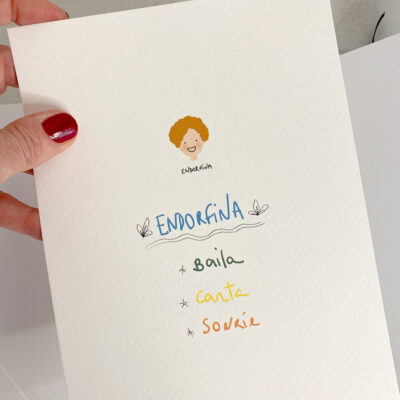 ENDORFINA
ENDORFINA
* Baila
* Canta
* SONRIE